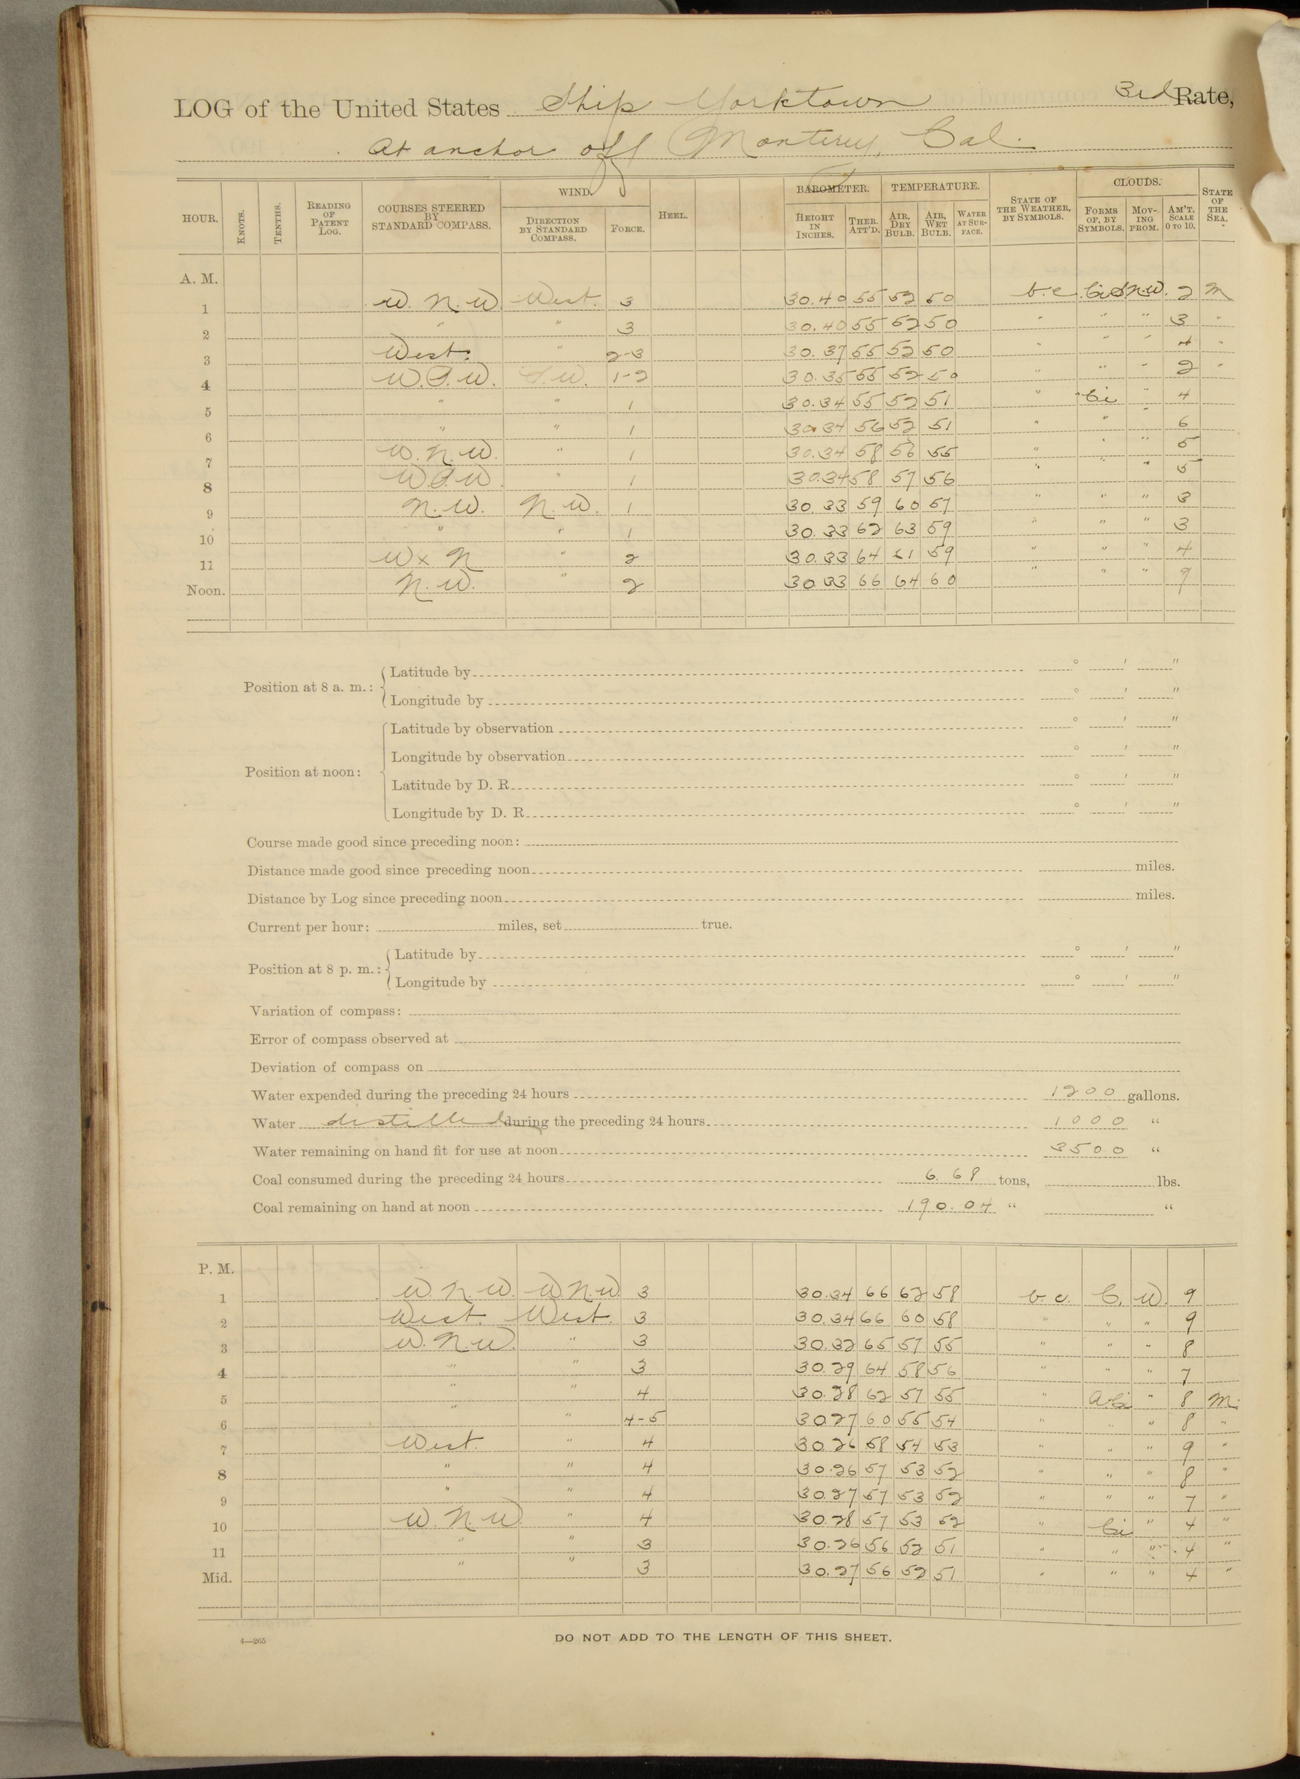 LOG of the United States Ship Yorktown 3rd Rate,
At anchor off Monterey, Cal.
HOUR. KNOTS. TENTHS. READING OF PATENT LOG. COURSES STEERED BY STANDARD COMPASS. WIND. DIRECTION BY STANDARD COMPASS. FORCE. HEEL. BAROMETER. HEIGHT IN INCHES. THER. ATT'D. TEMPERATURE. AIR, DRY BULB. AIR, WET BULB. WATER AT SURFACE. STATE OF THE WEATHER, BY SYMBOLS. CLOUDS. FORMS OF, BY SYMBOLS. MOVING FROM. AM'T. SCALE 0 TO 10. STATE OF THE SEA.
A. M.
1 W. N. W. West. 3 30.40 55 52 50 b.c. N.W. 2 M
2 " " 3 30.40 55 52 50 " " " 3 "
3 West. " 2-3 30.37 55 52 50 " " " 4 "
4 W.S.W. S.W. 1-2 30.35 55 52 50 " " " 2 "
5 " " 1 30.34 55 52 51 " Ci " 4
6 " " 1 30.34 56 52 51 " " 6
7 W. N. W. " 1 30.34 58 56 55 " " 5
8 W.S.W. " 1 30.34 58 57 56 " " " 5
9 N. W. N. W. 1 30.33 59 60 57 " " " 3
10 " " 1 30.33 62 63 59 " " " 3
11 W x N " 2 30.33 64 61 59 " " " 4
Noon. N. W. " 2 30.33 66 64 60 " " " 9
Position at 8 a. m.: Latitude by ° ' "
Longitude by ° ' "
Latitude by observation ° ' "
Longitude by observation ° ' "
Position at noon:
Latitude by D. R. ° ' "
Longitude by D. R. ° ' "
Course made good since preceding noon:
Distance made good since preceding noon miles.
Distance by Log since preceding noon miles.
Current per hour: miles, set true.
Position at 8 p. m.: Latitude by ° ' "
Longitude by ° ' "
Variation of compass:
Error of compass observed at
Deviation of compass on
Water expended during the preceding 24 hours 1200 gallons.
Water distilled during the preceding 24 hours 1000 "
Water remaining on hand fit for use at noon 3500 "
Coal consumed during the preceding 24 hours 6.68 tons, lbs.
Coal remaining on hand at noon 190.04 " "
P. M.
1 W. N. W. W. N. W. 3 30.34 66 62 58 b. c. C. W. 9
2 West. West. 3 30.34 66 60 58 " " " 9
3 W. N. W. " 3 30.32 65 57 55 " " " 8
4 " " 3 30.29 64 58 56 " " " 7
5 " " 4 30.28 62 57 55 " " 8 M.
6 " " 4-5 30.27 60 55 54 " " " 8 "
7 West. " 4 30.26 58 54 53 " " " 9 "
8 " " 4 30.26 57 53 52 " " " 8 "
9 " " 4 30.27 57 53 52 " " " 7 "
10 W. N. W. " 4 30.28 57 53 52 " Ci " 4 "
11 " " 3 30.26 56 52 51 " " " 4 "
Mid. " " 3 30.27 56 52 51 " " " 4 "
4—265
DO NOT ADD TO THE LENGTH OF THIS SHEET.